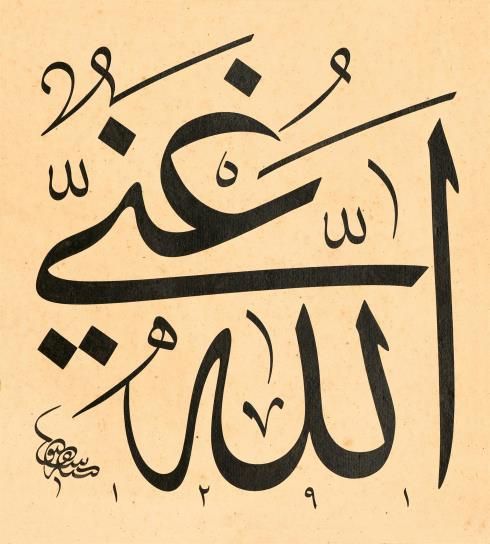 اللّٰهُ
غَنِيٌّ
١٢٩١